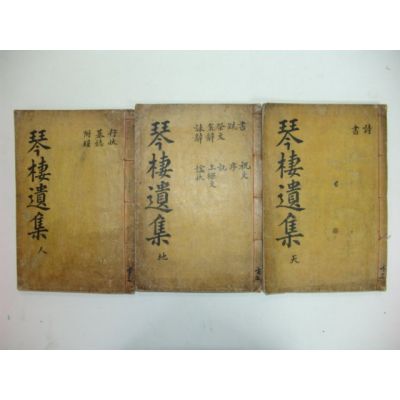 詩
書
琴棲遺集 天
書 祝文
序
祭文 記
哀辭 上樑文
誄辭
琴棲遺集 地
行狀
墓誌
附錄
琴棲遺集 人